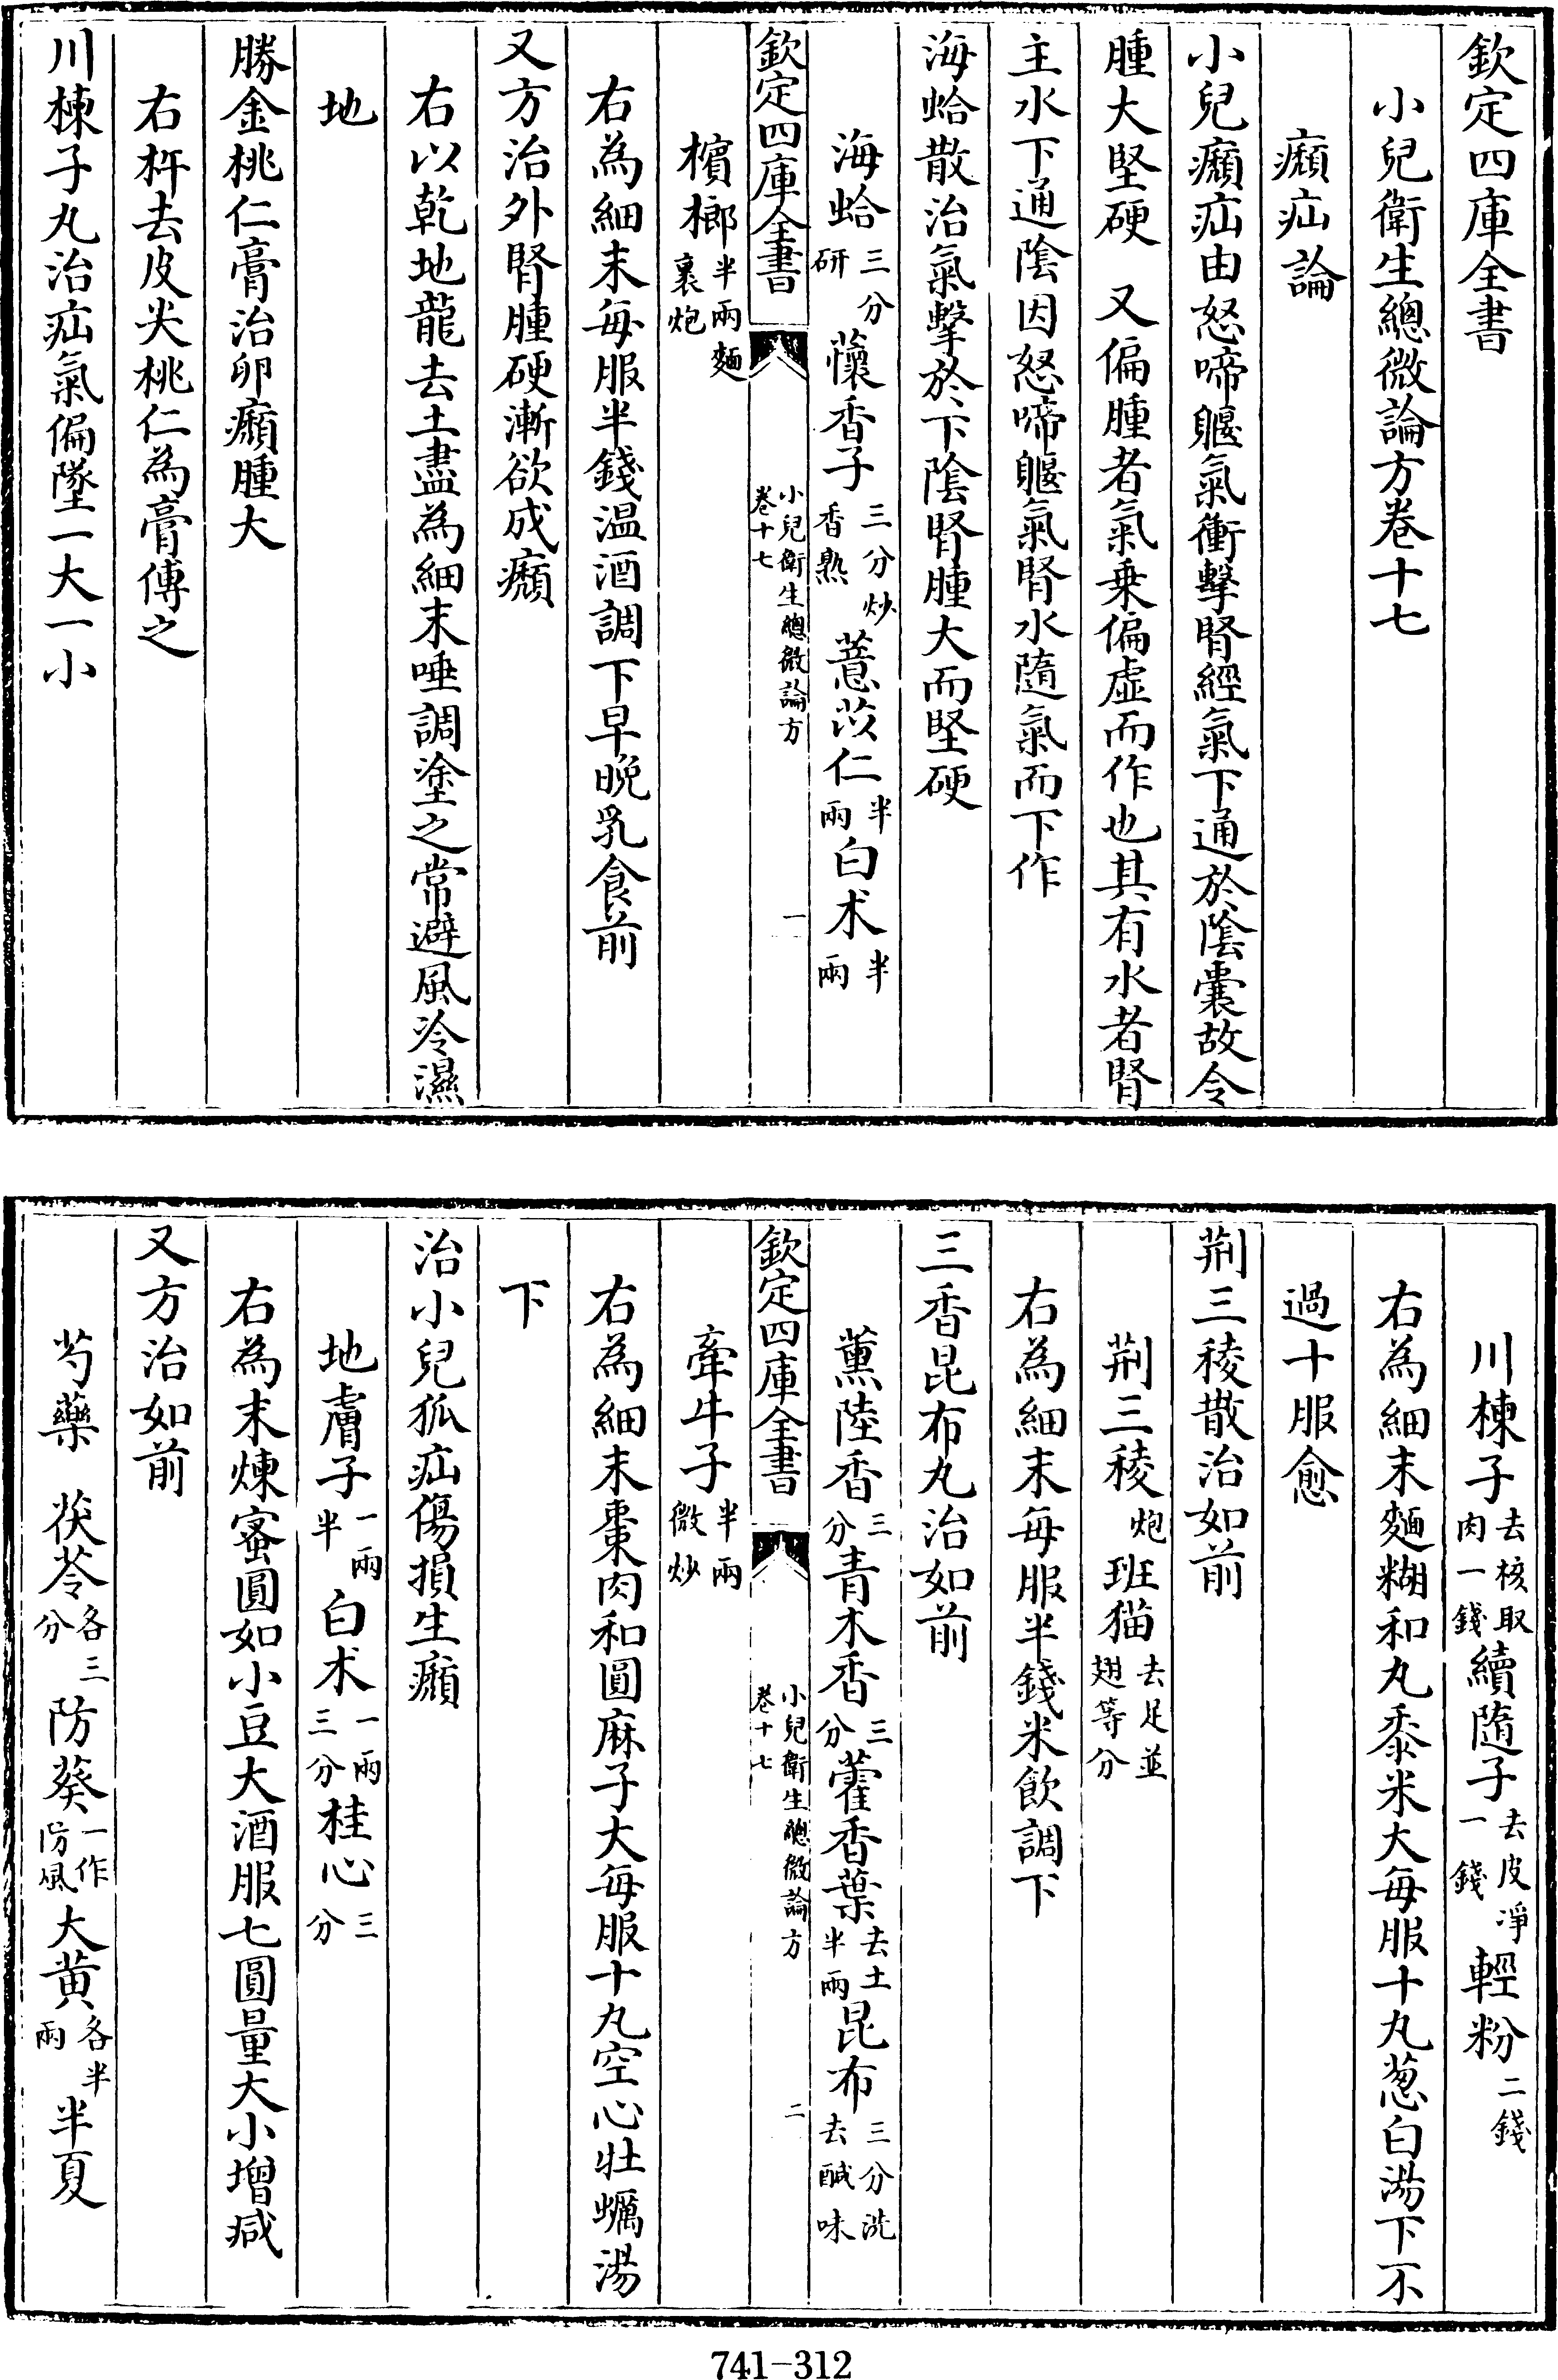 欽定四庫全書
小兒衛生總微論方卷十七
癩疝論
小兒癩疝由怒啼軀氣衝擊腎經氣下通於陰囊故令
腫大堅硬　又偏腫者氣乗偏虛而作也其有水者腎
主水下通陰因怒啼軀氣腎水隨氣而下作
海蛤散治氣擊於下陰腎腫大而堅硬
海蛤三分研　懷香子三分炒香熟　薏苡仁半兩　白术半兩
欽定四庫全書　小兒衛生總微論方卷十七　一
檳榔半兩麵裹炮
右為細末每服半錢温酒調下早晚乳食前
又方治外腎腫硬漸欲成癩
右以乾地龍去土盡為細末唾調塗之常避風冷濕
地
勝金桃仁膏治卵癩腫大
右杵去皮尖桃仁為膏傅之
川楝子丸治疝氣偏墜一大一小
川楝子去核取肉一錢　續隨子去皮淨一錢　輕粉二錢
右為細末麵糊和丸黍米大每服十丸葱白湯下不
過十服愈
荆三稜散治如前
荆三稜炮　班猫去足翅並等分
右為細末每服半錢米飲調下
三香昆布丸治如前
薰陸香三分　青木香三分　藿香葉去土半兩　昆布三分洗去鹹味
欽定四庫全書　小兒衛生總微論方卷十七　二
牽牛子半兩微炒
右為細末棗肉和圓麻子大每服十丸空心牡蠣湯
下
治小兒狐疝傷損生癩
地膚子一兩半　白术一兩三分　桂心三分
右為末煉蜜圓如小豆大酒服七圓量大小增減
又方治如前
芍藥　茯苓各三分　防葵一作防風　大黄各半兩　半夏
741-312